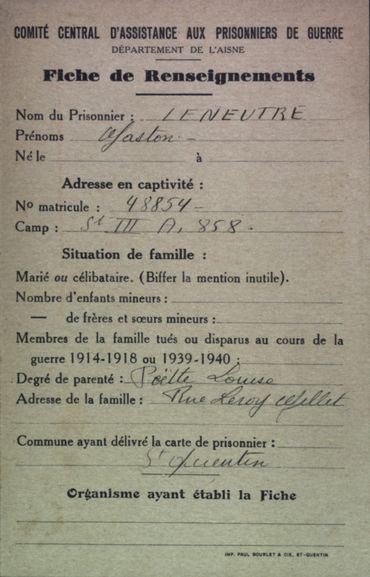 COMITÉ CENTRAL D'ASSISTANCE AUX PRISONNIERS DE GUERRE
DÉPARTEMENT DE L'AISNE
Fiche de Renseignements
Nom du Prisonnier : LENEUTRE
Prénoms Gaston
Né le à
Adresse en captivité :
No matricule : 48854
Camp : St III A, 858.
Situation de famille :
Marié ou célibataire. (Biffer la mention inutile).
Nombre d'enfants mineurs :
— de frères et sœurs mineurs :
Membres de la famille tués ou disparus au cours de la
guerre 1914-1918 ou 1939-1940 :
Degré de parenté : Poëtte Louise
Adresse de la famille : Rue Leroy Mellet
Commune ayant délivré la carte de prisonnier :
St Quentin
Organisme ayant établi la Fiche
IMP. PAUL BOURLET & CIE, ST-QUENTIN